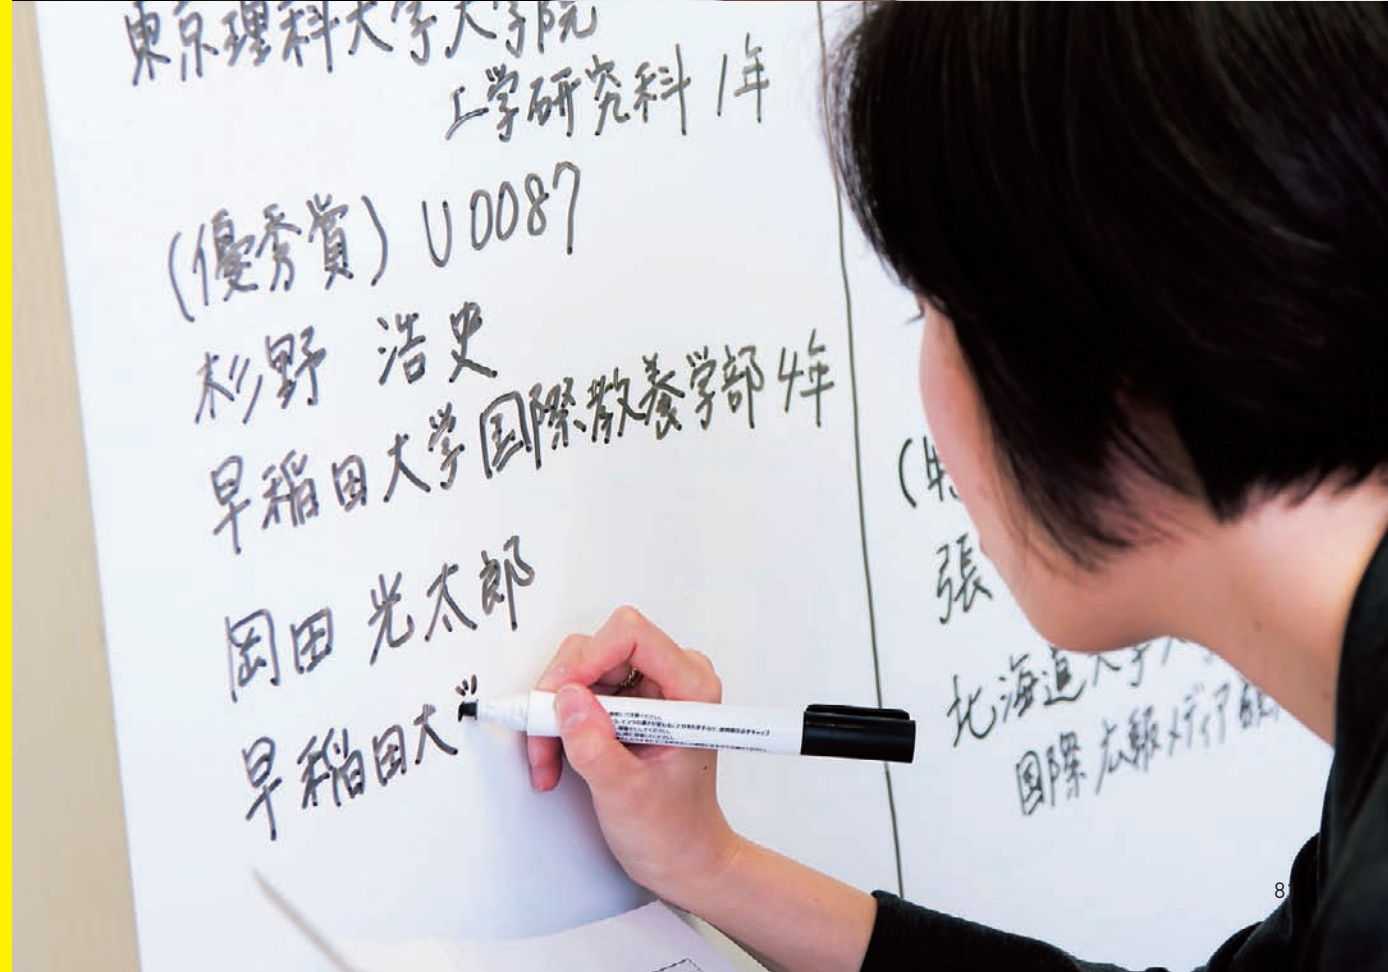 東京理科大学大学院
工学研究科 1年
(優秀賞) U0087
杉野 浩史
早稲田大学国際教養学部 4年
岡田 光太郎
早稲田大
(特
張
北海道大学大
国際広報メディア
8